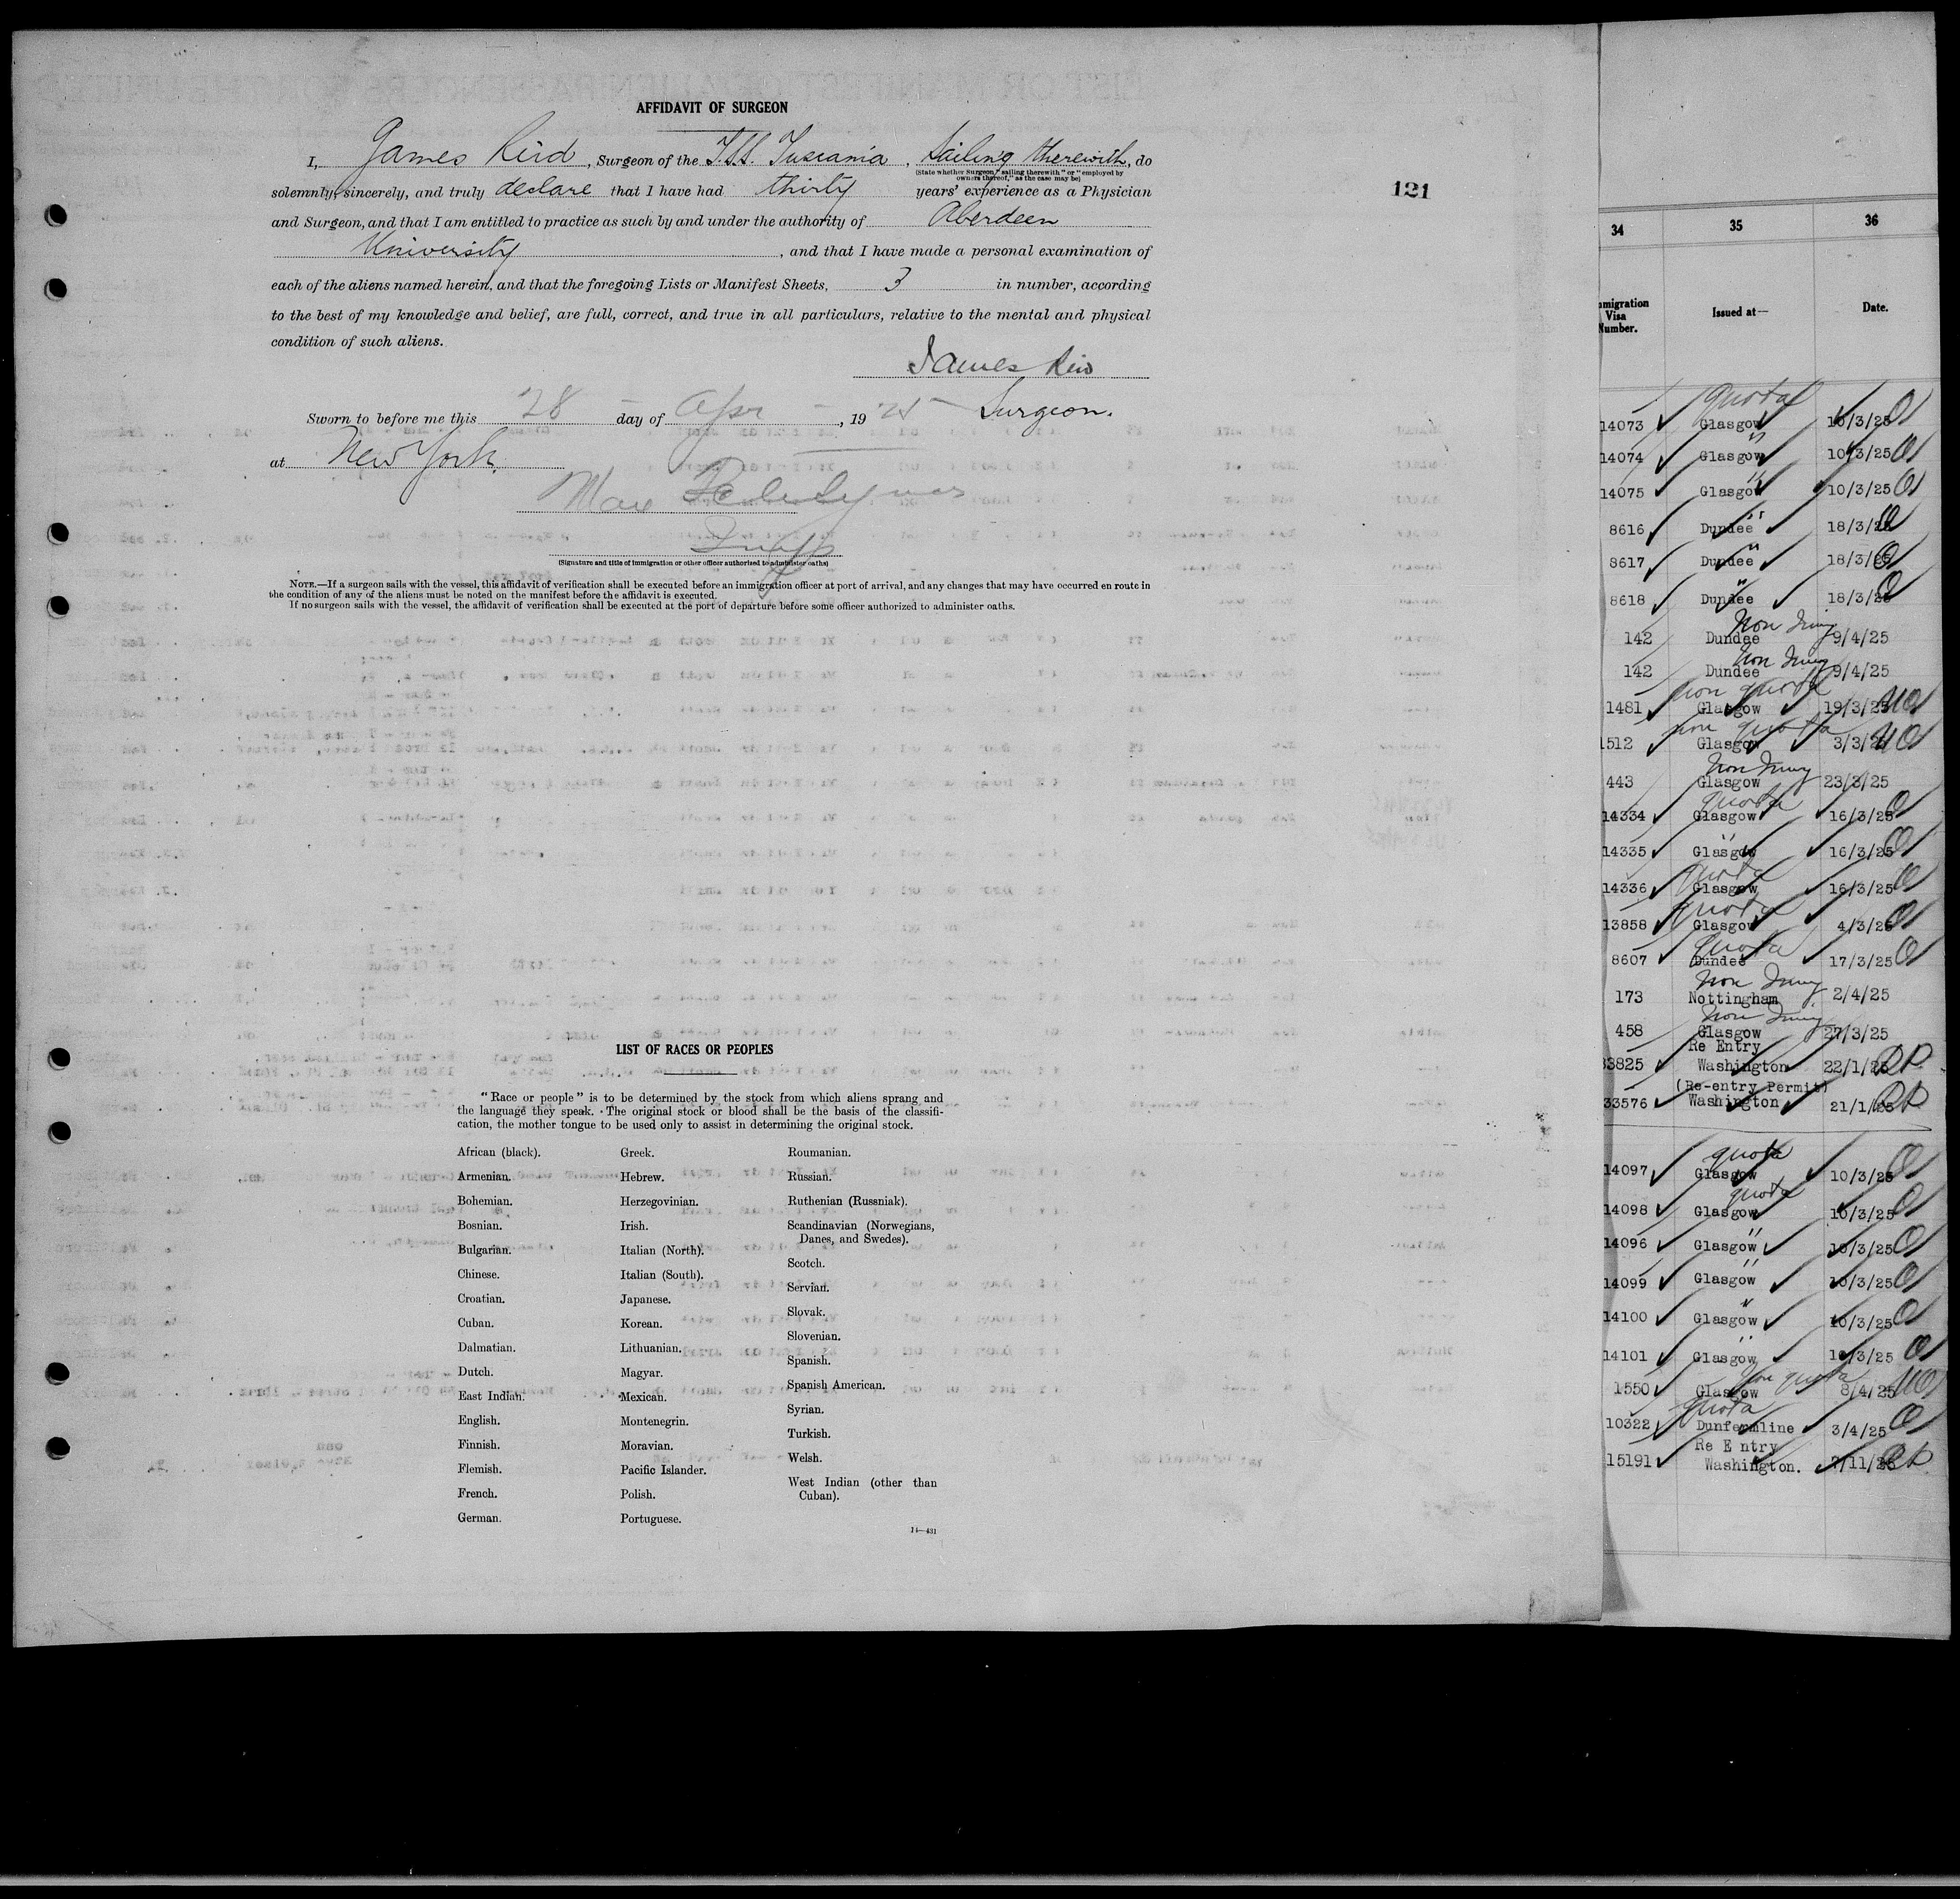 AFFIDAVIT OF SURGEON
I, James Reid, Surgeon of the T.S.S. Tuscania, Sailing therewith, do
(State whether Surgeon "sailing therewith" or "employed by
owners thereof," as the case may be)
solemnly, sincerely, and truly declare that I have had thirty years' experience as a Physician
and Surgeon, and that I am entitled to practice as such by and under the authority of Aberdeen
University, and that I have made a personal examination of
each of the aliens named herein, and that the foregoing Lists or Manifest Sheets, 3 in number, according
to the best of my knowledge and belief, are full, correct, and true in all particulars, relative to the mental and physical
condition of such aliens.
James Reid
Surgeon.
Sworn to before me this 28 day of Apr, 1925
at New York.
Max
Insp
(Signature and title of immigration or other officer authorized to administer oaths)
NOTE.—If a surgeon sails with the vessel, this affidavit of verification shall be executed before an immigration officer at port of arrival, and any changes that may have occurred en route in
the condition of any of the aliens must be noted on the manifest before the affidavit is executed.
If no surgeon sails with the vessel, the affidavit of verification shall be executed at the port of departure before some officer authorized to administer oaths.
121
LIST OF RACES OR PEOPLES
"Race or people" is to be determined by the stock from which aliens sprang and
the language they speak. The original stock or blood shall be the basis of the classifi-
cation, the mother tongue to be used only to assist in determining the original stock.
African (black).
Armenian.
Bohemian.
Bosnian.
Bulgarian.
Chinese.
Croatian.
Cuban.
Dalmatian.
Dutch.
East Indian.
English.
Finnish.
Flemish.
French.
German.
Greek.
Hebrew.
Herzegovinian.
Irish.
Italian (North).
Italian (South).
Japanese.
Korean.
Lithuanian.
Magyar.
Mexican.
Montenegrin.
Moravian.
Pacific Islander.
Polish.
Portuguese.
Roumanian.
Russian.
Ruthenian (Russniak).
Scandinavian (Norwegians,
Danes, and Swedes).
Scotch.
Servian.
Slovak.
Slovenian.
Spanish.
Spanish American.
Syrian.
Turkish.
Welsh.
West Indian (other than
Cuban).
14—431
34 35 36
mmigration
Visa
Number.
Issued at—
Date.
quota
14073 Glasgow 10/3/25
14074 Glasgow " 10/3/25
14075 Glasgow " 10/3/25
8616 Dundee " 18/3/25
8617 Dundee " 18/3/25
8618 Dundee " 18/3/25
Non Immg
142 Dundee 9/4/25
Non Immg
142 Dundee 9/4/25
non quota
1481 Glasgow 19/3/25 NQ
non quota
1512 Glasgow 3/3/25 NQ
Non Immg
443 Glasgow 23/3/25
quota
14334 Glasgow 16/3/25 Q
14335 Glasgow " 16/3/25 Q
quota
14336 Glasgow 16/3/25 Q
quota
13858 Glasgow 4/3/25 Q
Quota
8607 Dundee 17/3/25 Q
Non Immg
173 Nottingham 2/4/25
Non Immg
458 Glasgow 27/3/25
Re Entry
33825 Washington 22/1/25 RP
(Re-entry Permit)
33576 Washington 21/1/25 RP
quota
14097 Glasgow 10/3/25 Q
quota
14098 Glasgow 10/3/25 Q
14096 Glasgow " 10/3/25 Q
14099 Glasgow " 10/3/25 Q
14100 Glasgow " 10/3/25 Q
14101 Glasgow " 10/3/25 Q
Non quota
1550 Glasgow 8/4/25 NQ
quota
10322 Dunfermline 3/4/25 Q
Re Entry
15191 Washington. 7/11/25 RP